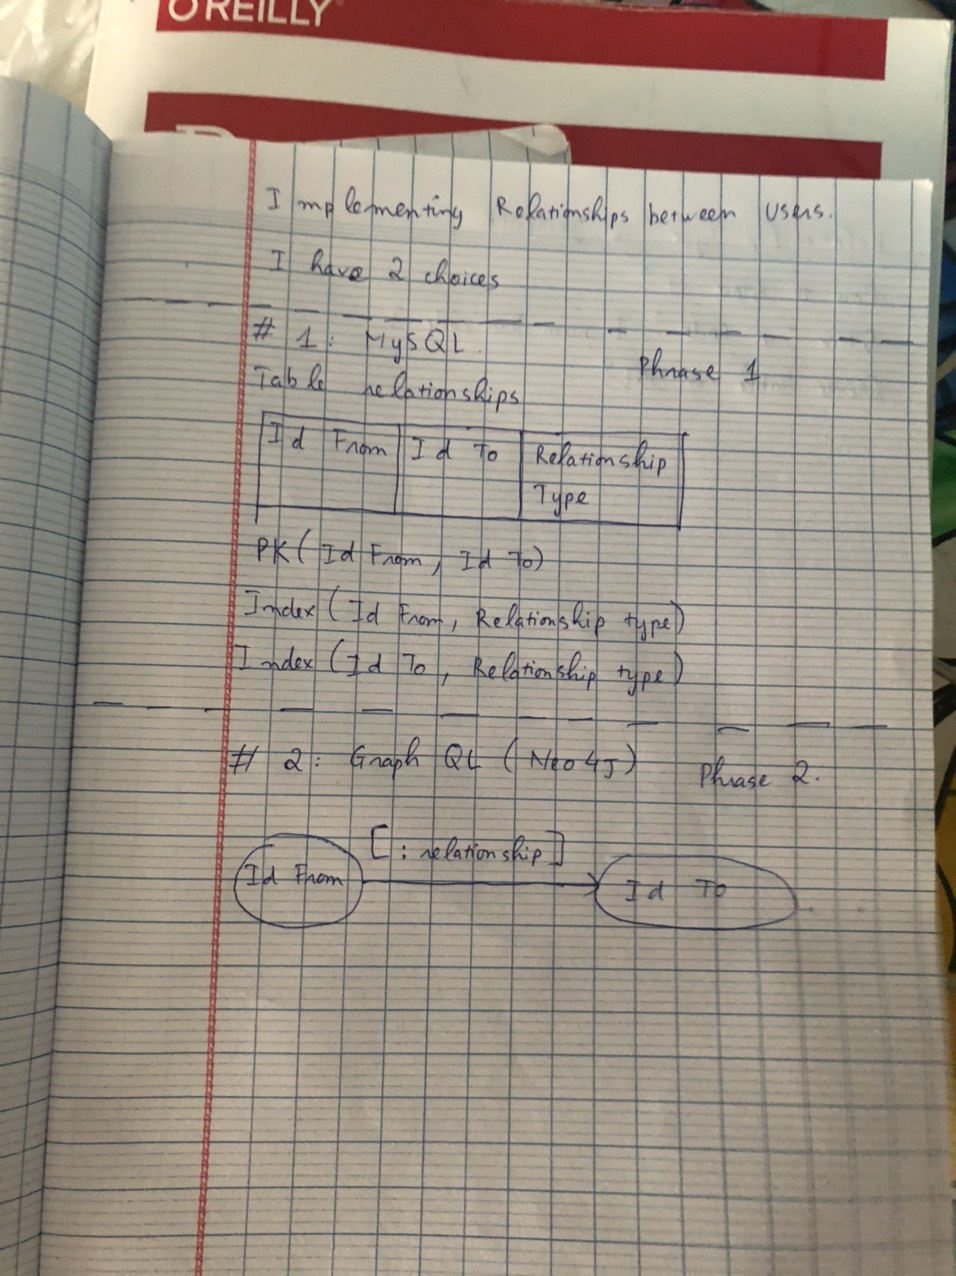 O'REILLY
Implementing Relationships between Users.
I have 2 choices
# 1: MySQL.
Phrase 1
Table relationships
Id From Id To Relationship Type
PK (Id From, Id To)
Index (Id From, Relationship type)
Index (Id To, Relationship type)
# 2: Graph QL (Neo4J) Phrase 2.
[: relationship]
Id From Id To